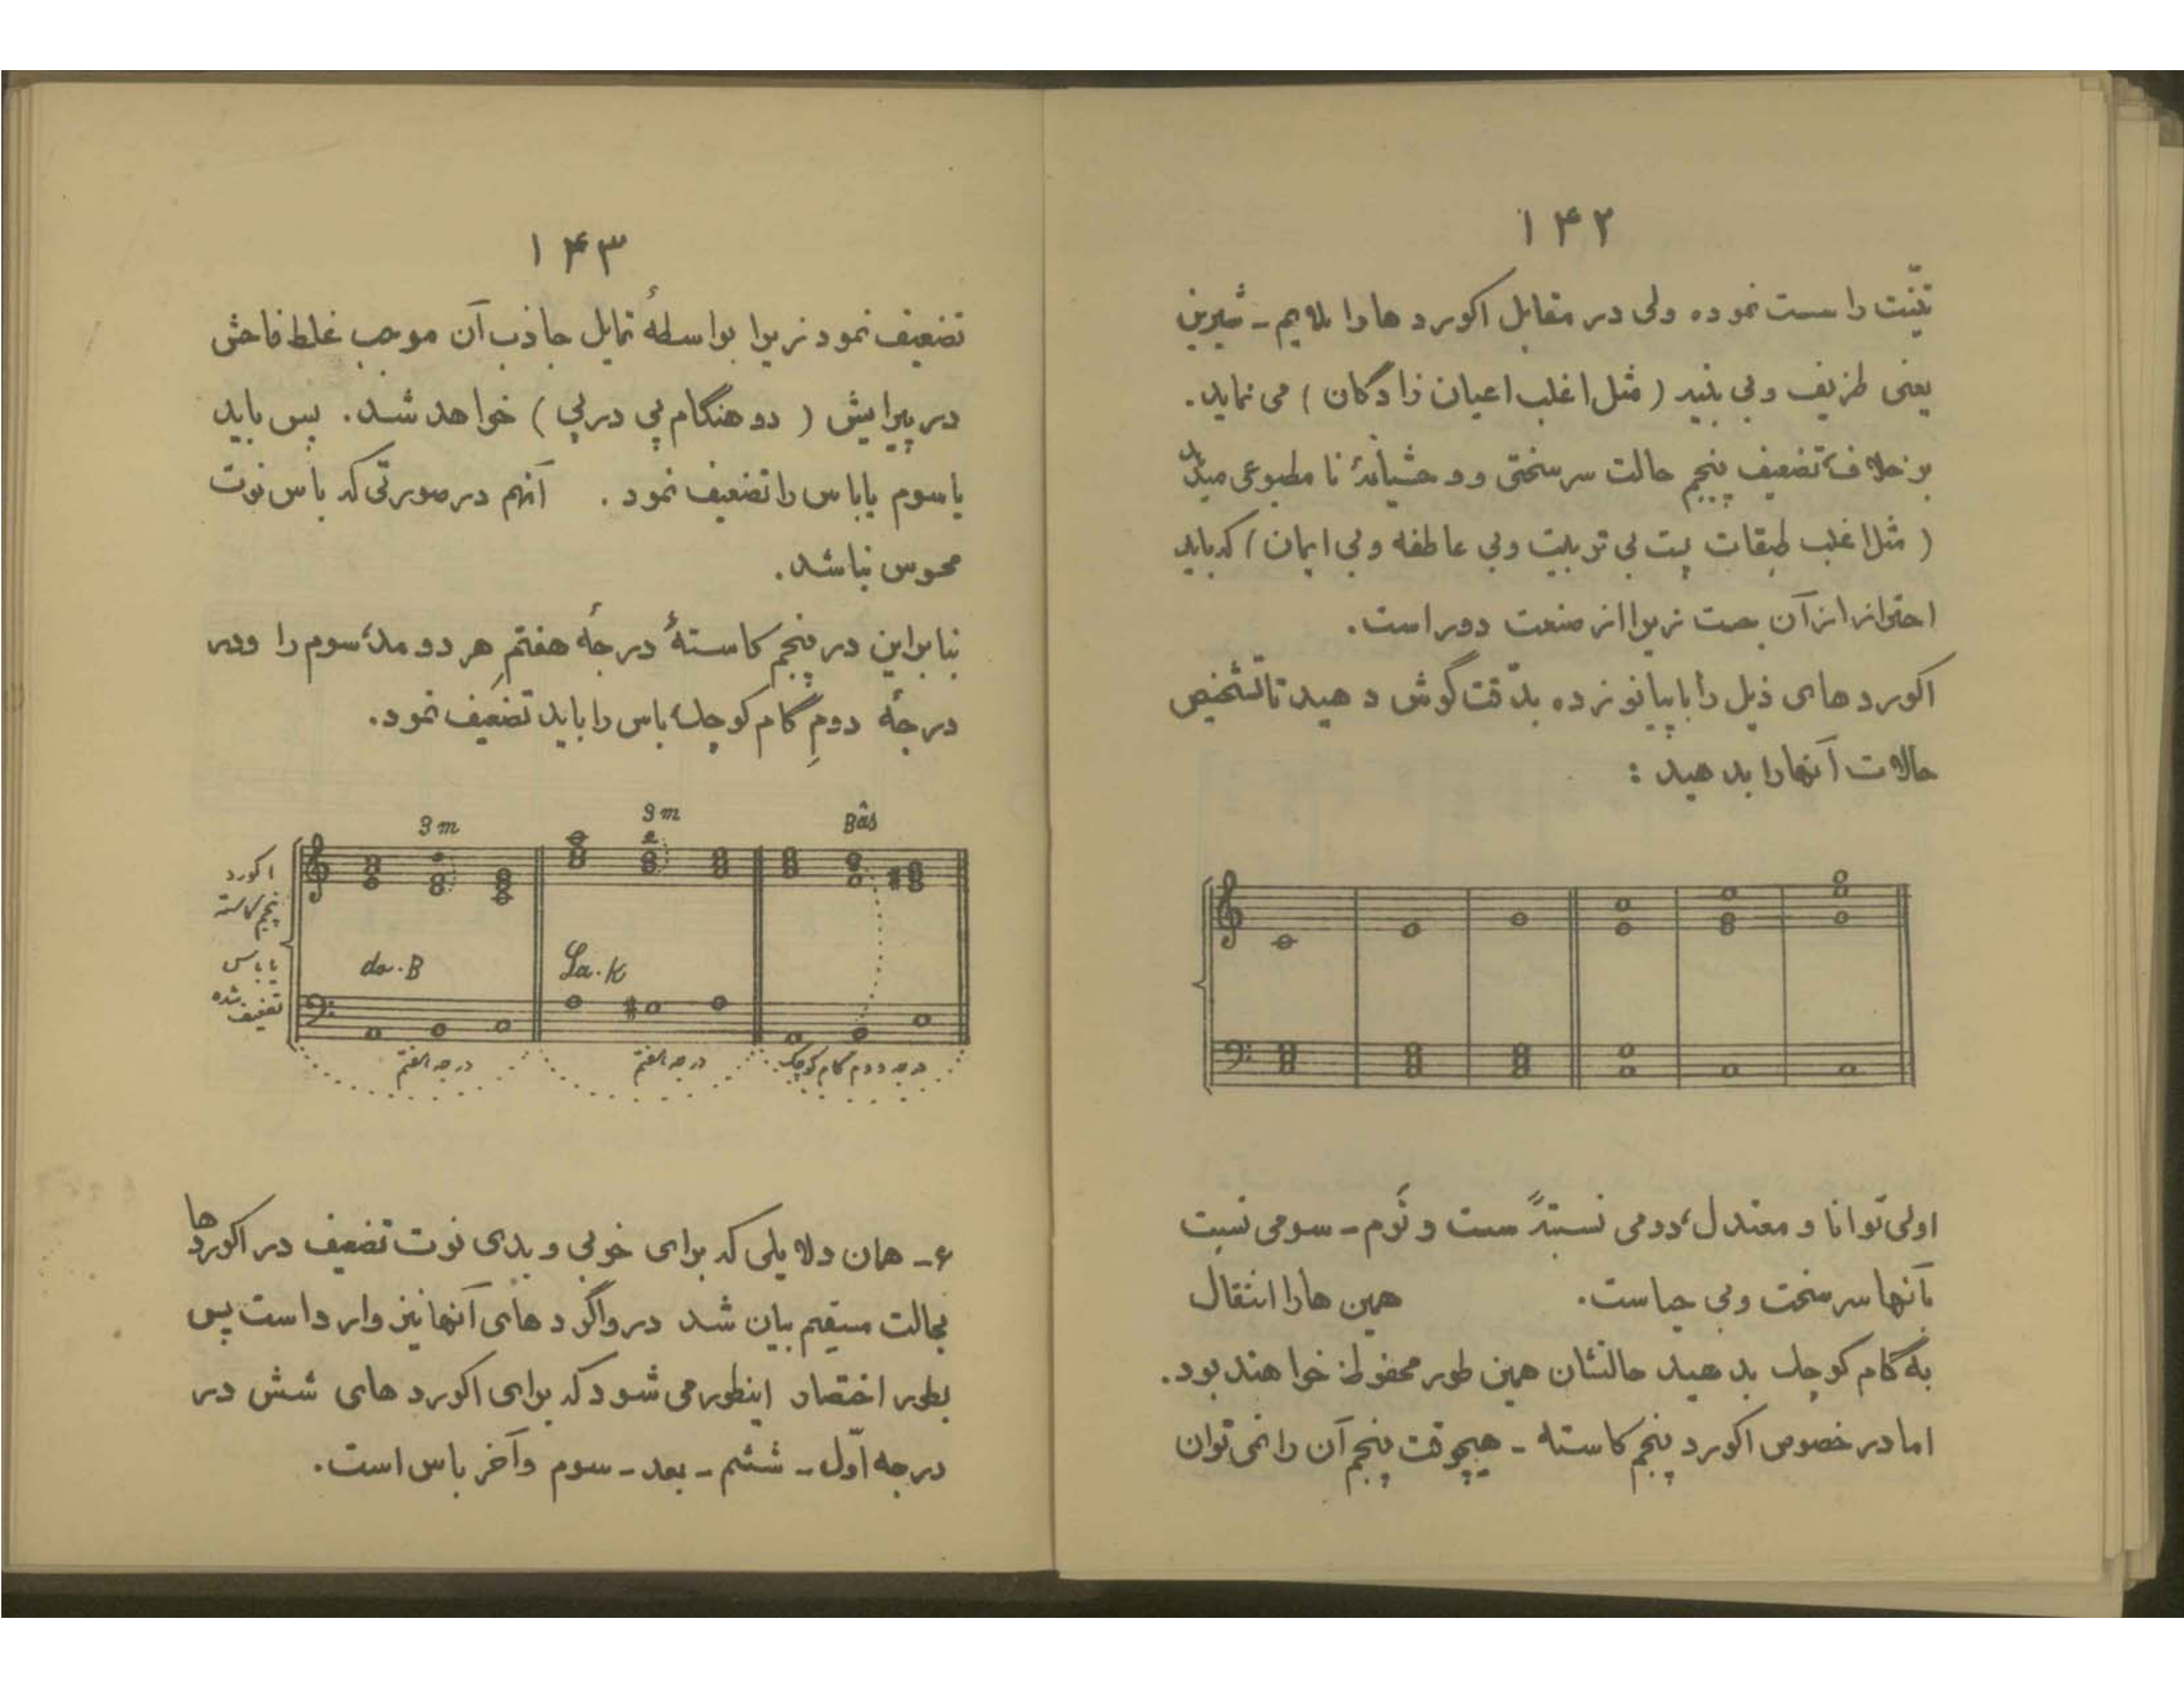 ۱۴۲
تنّت را سست نموده ولی در مقابل اکوردها را ملایم - شیرین
یعنی ظریف و بی بنیه ( مثل اغلب اعیان زادگان ) می نماید.
برخلاف تضعیف پنجم حالت سرسختی و وحشیانهٔ نا مطبوعی میدهد
( مثل اغلب طبقات پست بی تربیت و بی عاطفه و بی ایمان ) که باید
احتراز از آن جست زیرا از صنعت دور است.
اکوردهای ذیل را با پیانو زده بدقّت گوش دهید تا تشخیص
حالات آنها را بدهید :
اولی توانا و معتدل، دومی نسبتهً سست و نَرم - سومی نسبت
بآنها سرسخت و بی حیاست. همین ها را انتقال
به گام کوچک بدهید حالتشان همین طور محفوظ خواهند بود.
اما در خصوص اکورد پنجم کاسته - هیچوقت پنجم آن را نمی توان
۱۴۳
تضعیف نمود زیرا بواسطهٔ تمایل جاذب آن موجب غلط فاحش
در پیرایش ( دو هنگام پی در پی ) خواهد شد. پس باید
یا سوم یا باس را تضعیف نمود. آنهم در صورتی که باس نوت
محسوس نباشد.
بنابراین در پنجم کاستهٔ درجهٔ هفتمِ هر دو مد، سوم را و در
درجهٔ دومِ گام کوچک، باس را باید تضعیف نمود.
3 m 3 m Bâs
اکورد
پنجم کاسته
با باس
تضعیف شده
do. B La. K
درجه هفتم درجه هفتم درجه دوم گام کوچک
۶ - همان دلایلی که برای خوبی و بدی نوت تضعیف در اکوردها
بحالت مستقیم بیان شد در واگردهای آنها نیز وارد است پس
بطور اختصار اینطور می شود که برای اکوردهای شش در
درجه اوّل - ششم - بعد - سوم و آخر باس است.